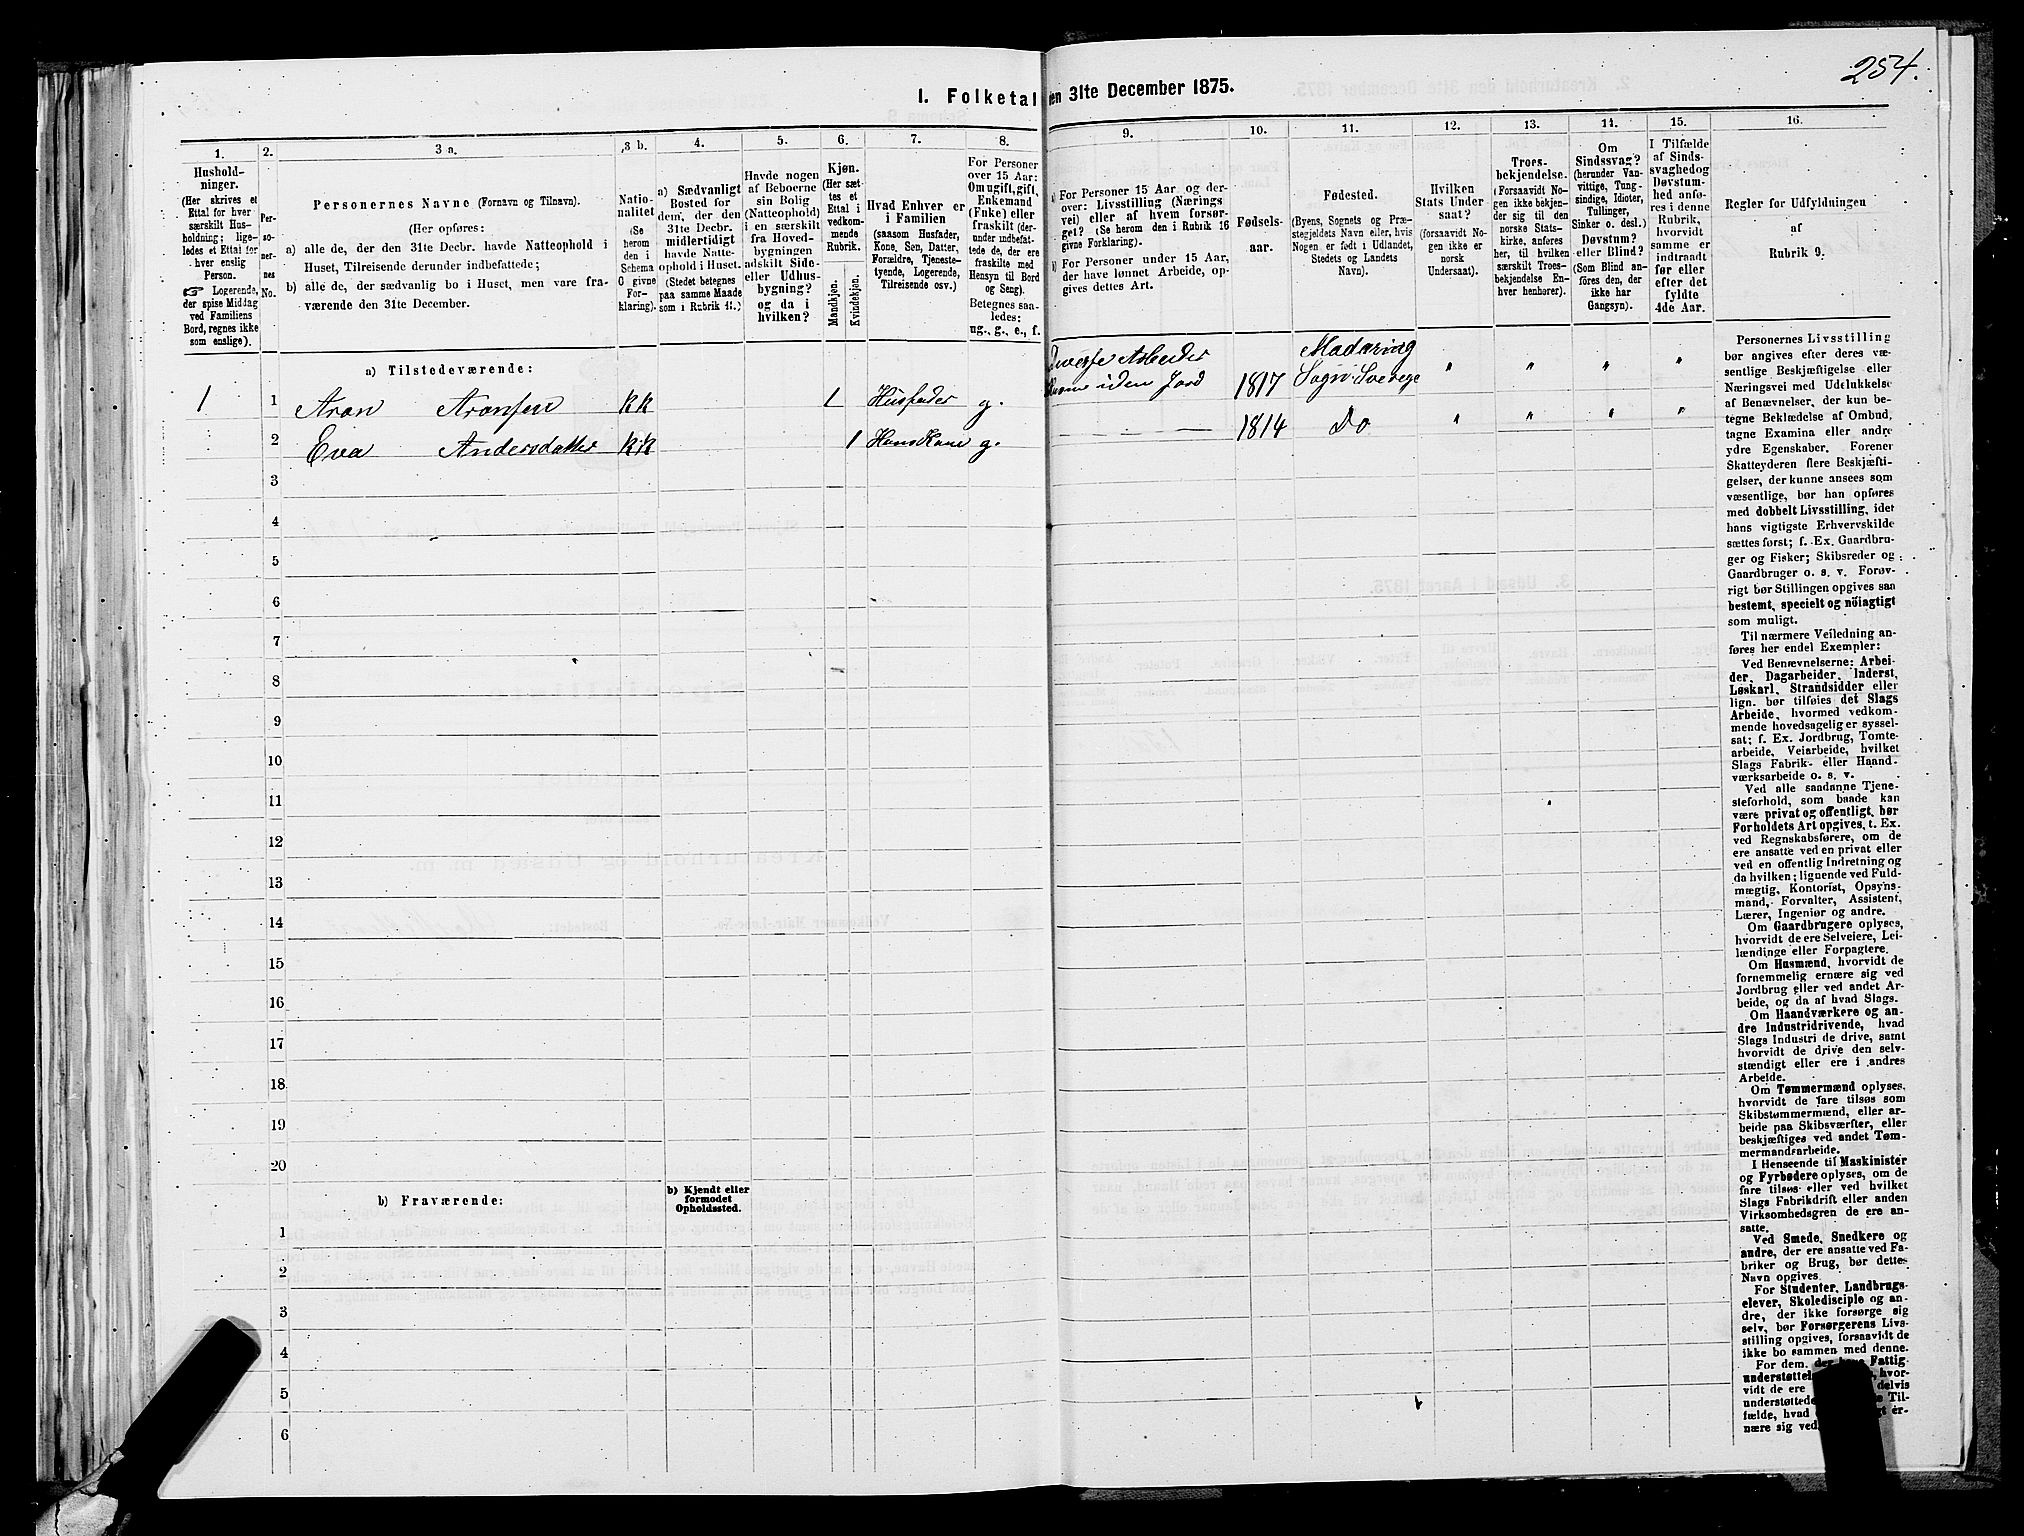 254.
I. Folketal
en 31te December 1875.
1.
2.
3 a.
3 b.
4.
5.
6.
7.
8.
9.
10.
11.
12.
13.
14.
15.
16.
Hushold-
ninger.
(Her skrives et
Ettal for hver
særskilt Hus-
holdning; lige-
ledes et Ettal for
hver enslig
Person.
☞ Logerende,
der spise Middag
ved Familiens
Bord, regnes ikke
som enslige).
Per-
so-
ner-
nes
No.
Personernes Navne (Fornavn og Tilnavn).
(Her opføres:
a) alle de, der den 31te Decbr. havde Natteophold i
Huset, Tilreisende derunder indbefattede;
b) alle de, der sædvanlig bo i Huset, men vare fra-
værende den 31te December.
Natio-
nalitet
(Se
herom
den i
Schema
O givne
For-
klaring).
a) Sædvanligt
Bosted for
dem, der den
31te Decbr.
midlertidigt
havde Natte-
ophold i Huset.
(Stedet betegnes
paa samme Maade
som i Rubrik 11.)
Havde nogen
af Beboerne
sin Bolig
(Natteophold)
i en særskilt
fra Hoved-
bygningen
adskilt Side-
eller Udhus-
bygning?
og da i
hvilken?
Kjøn.
(Her sæt-
tes et
Ettal i
vedkom-
mende
Rubrik.
Mandkjøn.
Kvindekjøn.
Hvad Enhver er
i Familien
(saasom Husfader,
Kone, Søn, Datter,
Forældre, Tjeneste-
tyende, Logerende,
Tilreisende osv.)
For Personer
over 15 Aar:
Om ugift, gift,
Enkemand
(Enke) eller
fraskilt (der-
under indbefat-
tede de, der ere
fraskilte med
Hensyn til Bord
og Seng).
Betegnes saa-
ledes:
ug., g., e., f.
a) For Personer 15 Aar og der-
over: Livsstilling (Nærings
vei) eller af hvem forsør-
get? (Se herom den i Rubrik 16
givne Forklaring).
b) For Personer under 15 Aar,
der have lønnet Arbeide, op-
gives dettes Art.
Fødsels-
aar.
Fødested.
(Byens, Sognets og Præ-
stegjeldets Navn eller, hvis
Nogen er født i Udlandet,
Stedets og Landets
Navn).
Hvilken
Stats Under-
saat?
(forsaavidt No-
gen ikke er
norsk
Undersaat).
Troes-
bekjendelse.
(Forsaavidt No-
gen ikke bekjen-
der sig til den
norske Stats-
kirke, anføres
her, til hvilken
særskilt Troes-
bekjendelse En-
hver henhører).
Om
Sindssvag?
(herunder Van-
vittige, Tung-
sindige, Idioter,
Tullinger,
Sinker o. desl.)
Døvstum?
eller Blind?
(Som Blind an-
føres den, der
ikke har
Gangsyn).
I Tilfælde
af Sinds-
svaghed og
Døvstum-
hed anfø-
res i denne
Rubrik,
hvorvidt
samme er
indtraadt
før eller
efter det
fyldte
4de Aar.
Regler for Udfyldningen
af
Rubrik 9.
a) Tilstedeværende:
1 1 Aron Aronsen KK 1 Husfader g. Diverse Arbeider uden Jord 1817 Sogn Sverige " " " "
2 Eva Andersdatter KK 1 Hans Kone g. 1814 Do " " " "
3
4
5
6
7
8
9
10
11
12
13
14
15
16
17
18
19
20
b) Fraværende:
b) Kjendt eller
formodet
Opholdssted.
1
2
3
4
5
6
Personernes Livsstilling
bør angives efter deres væ-
sentlige Beskjæftigelse eller
Næringsvei med Udelukkelse
af Benævnelser, der kun be-
tegne Beklædelse af Ombud,
tagne Examina eller andre
ydre Egenskaber. Forener
Skatteyderen flere Beskjæfti-
gelser, der kunne ansees som
væsentlige, bør han opføres
med dobbelt Livsstilling, idet
hans vigtigste Erhvervskilde
sættes først; f. Ex. Gaardbru-
ger og Fisker; Skibsreder og
Gaardbruger o. s. v. Forøv-
rigt bør Stillingen opgives saa
bestemt, specielt og nöiagtigt
som muligt.
Til nærmere Veiledning an-
føres her endel Exempler:
Ved Benævnelserne: Arbei-
der, Dagarbeider, Inderst,
Løskarl, Strandsidder eller
lign. bør tilføies det Slags
Arbeide, hvormed vedkom-
mende hovedsagelig er syssel-
sat; f. Ex. Jordbrug, Tomte-
arbeide, Veiarbeide, hvilket
Slags Fabrik- eller Haand-
værksarbeide o. s. v.
Ved alle saadanne Tjene-
steforhold, som baade kan
være privat og offentligt, bør
Forholdets Art opgives, t. Ex.
ved Regnskabsførere, om de
ere ansatte ved en privat eller
ved en offentlig Indretning og
da hvilken; lignende ved Fuld-
mægtig, Kontorist, Opsyns-
mand, Forvalter, Assistent,
Lærer, Ingeniør og andre.
Om Gaardbrugere oplyses,
hvorvidt de ere Selveiere, Lei-
lændinge eller Forpagtere.
Om Husmænd, hvorvidt de
fornemmelig ernære sig ved
Jordbrug eller ved andet Ar-
beide, og da af hvad Slags.
Om Haandværkere og an-
dre Industridrivende, hvad
Slags Industri de drive, samt
hvorvidt de drive den selv-
stændigt eller ere i andres
Arbeide.
Om Tømmermænd oplyses,
hvorvidt de fare tilsøs som
Skibstømmermænd, eller ar-
beide paa Skibsværfter, eller
beskjæftiges ved andet Tøm-
mermandsarbeide.
I Henseende til Maskinister
og Fyrbødere oplyses, om de
fare tilsøs eller ved hvilket
Slags Fabrikdrift eller anden
Virksomhedsgren de ere an-
satte.
Ved Smede, Snedkere og
andre, der ere ansatte ved Fa-
briker og Brug, bør dettes
Navn opgives.
For Studenter, Landbrugs-
elever, Skoledisciple og an-
dre, der ikke forsørge sig
selv, bør Forsørgerens Livs-
stilling opgives, forsaavidt de
ikke bo sammen med denne.
For dem, der have Fattig-
understøttel hvor-
vidt de ere delvis
understøttede Til-
fælde, hvad er-
nære sig ved